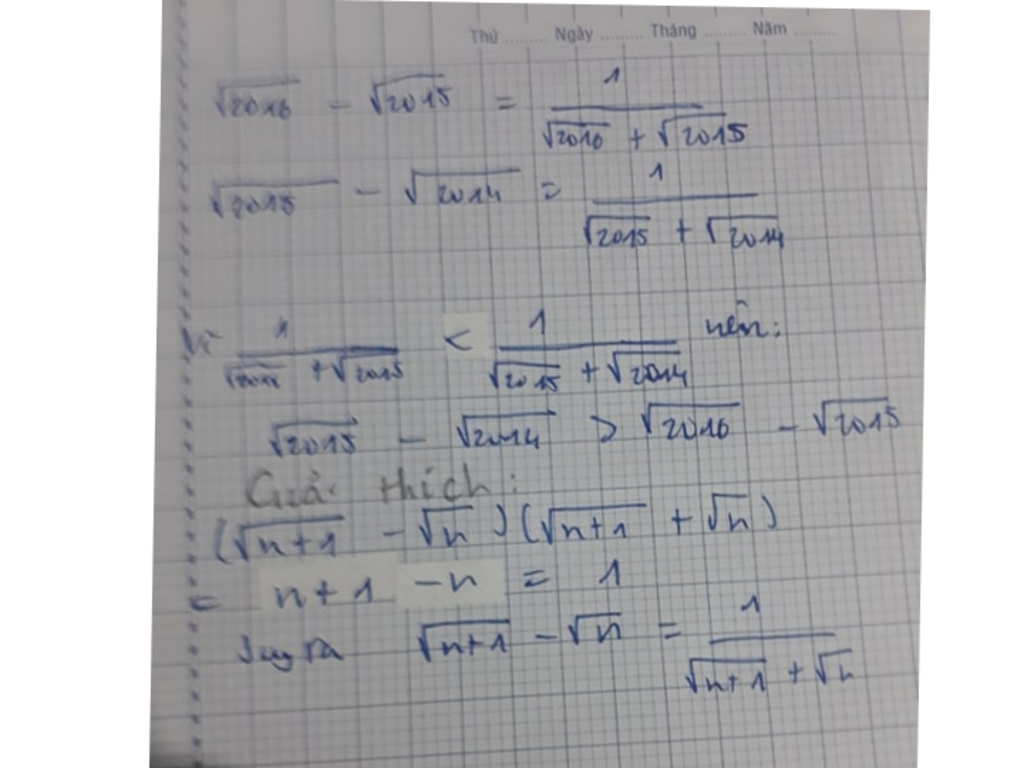 Thứ ......... Ngày ......... Tháng ......... Năm .........
√2016 - √2015 = 1/(√2016 + √2015)
√2015 - √2014 = 1/(√2015 + √2014)
Vì 1/(√2016 + √2015) < 1/(√2015 + √2014) nên:
√2015 - √2014 > √2016 - √2015
Giải thích:
(√n+1 - √n)(√n+1 + √n)
= n+1 -n = 1
Suy ra √n+1 - √n = 1/(√n+1 + √n)